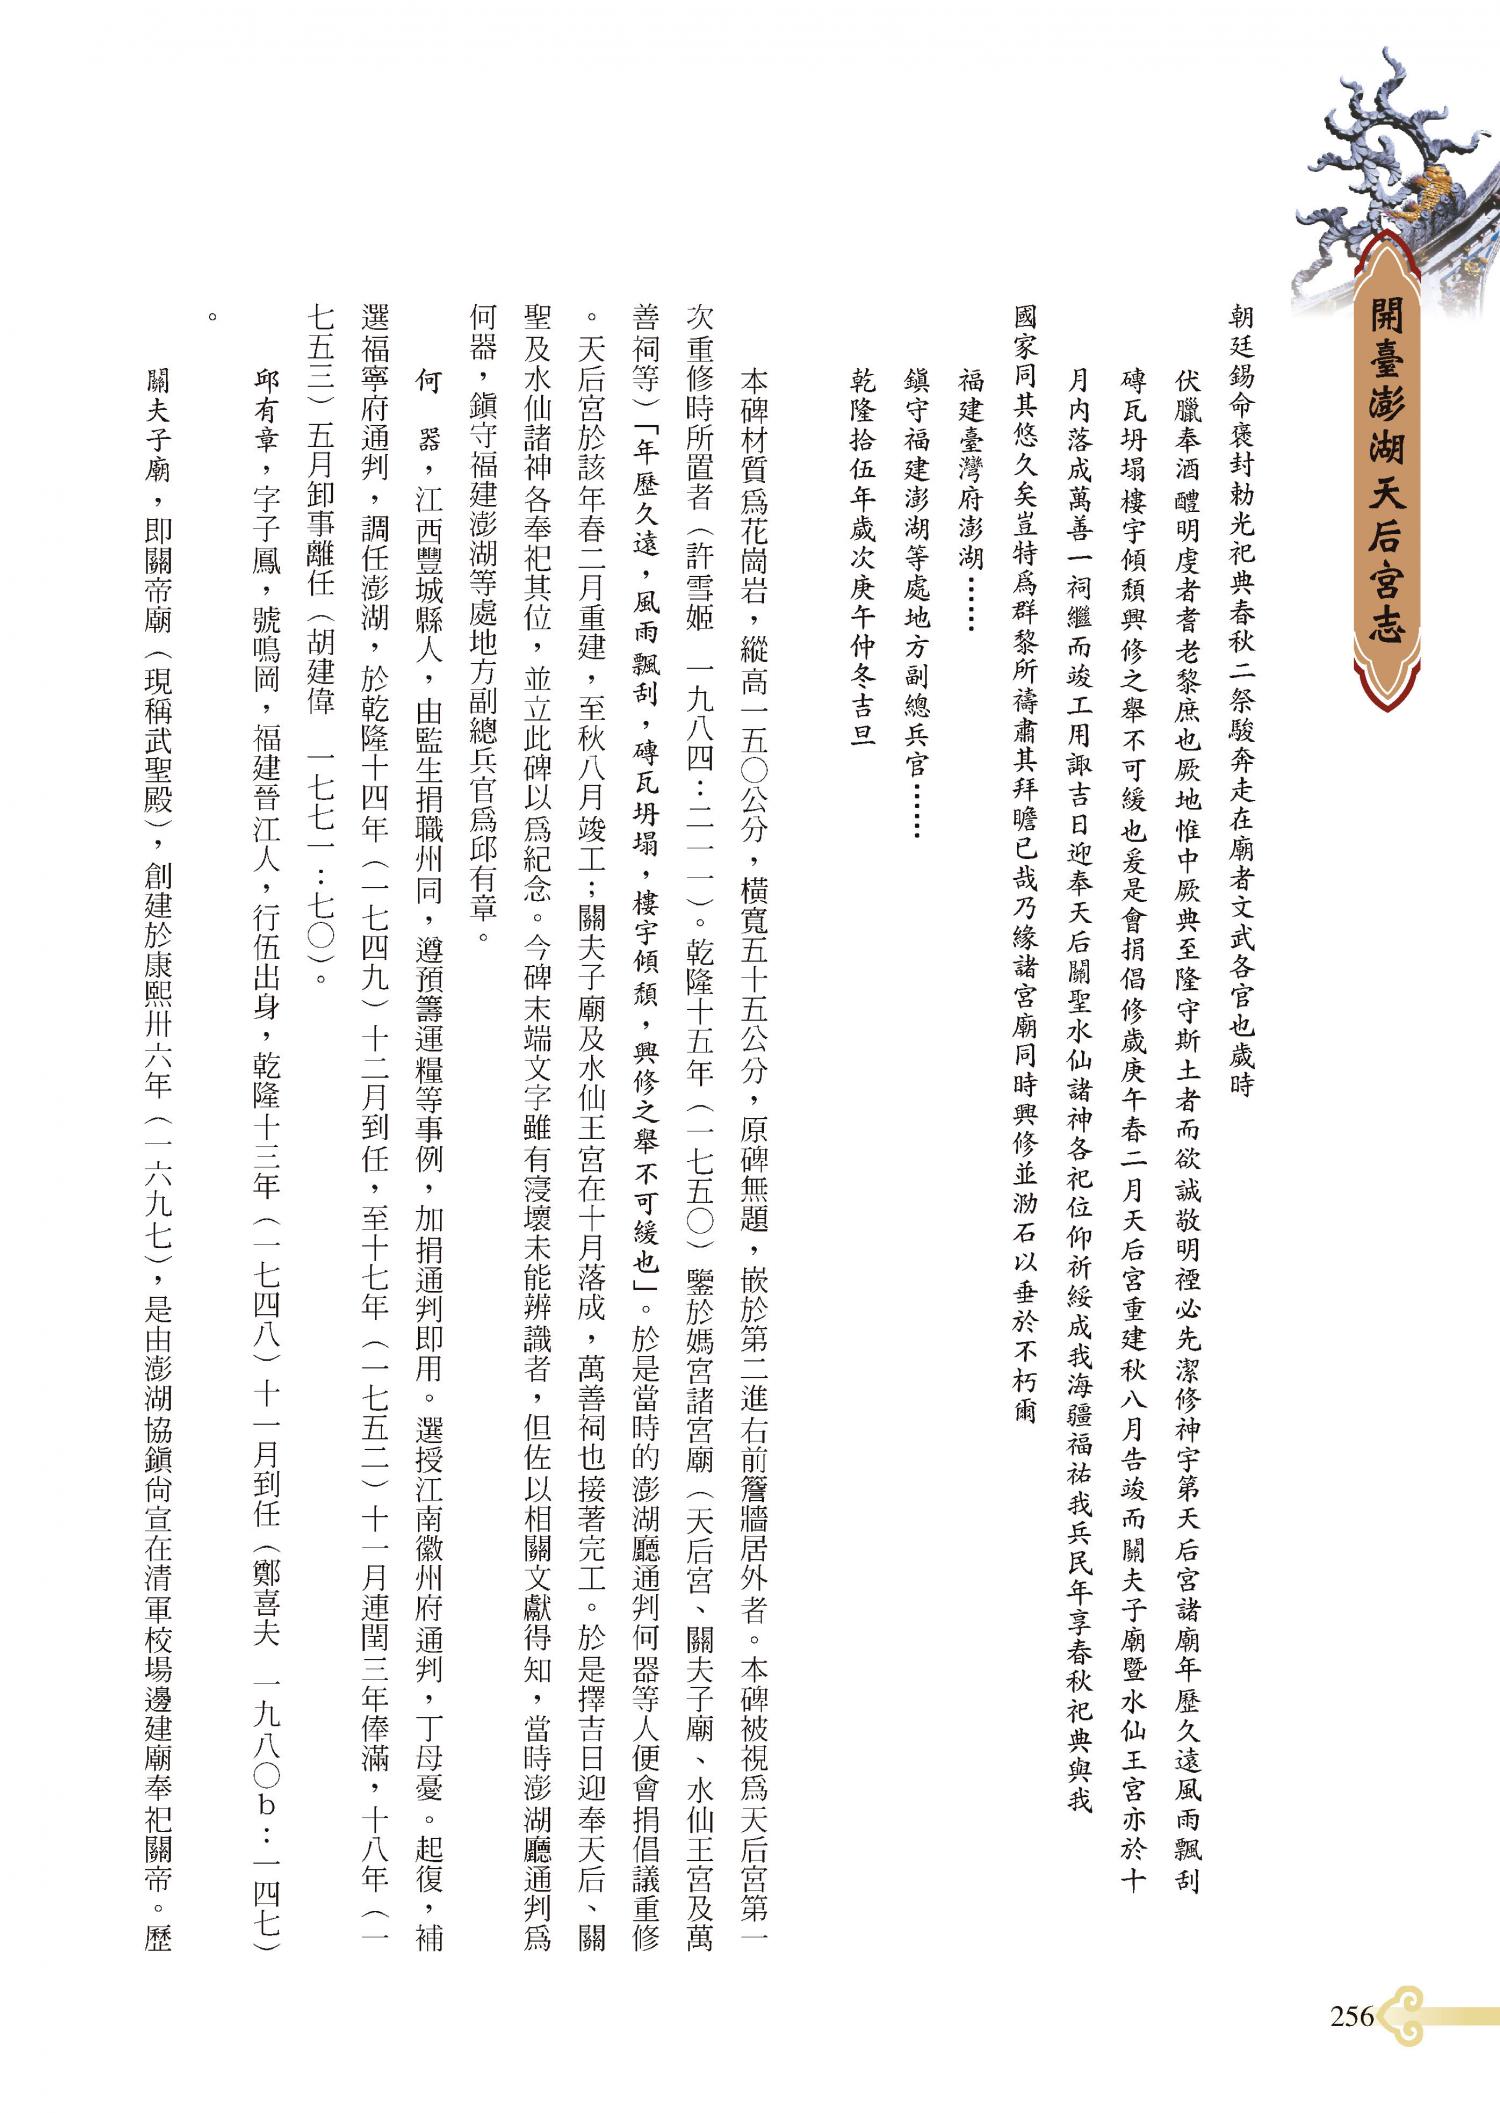 開臺澎湖天后宮志
朝廷錫命褒封勅光祀典春秋二祭駿奔走在廟者文武各官也歲時
伏臘奉酒醴明虔者耆老黎庶也厥地惟中厥典至隆守斯土者而欲誠敬明禋必先潔修神宇第天后宮諸廟年歷久遠風雨飄刮
磚瓦坍塌樓宇傾頹興修之舉不可緩也爰是會捐倡修歲庚午春二月天后宮重建秋八月告竣而關夫子廟暨水仙王宮亦於十
月內落成萬善一祠繼而竣工用諏吉日迎奉天后關聖水仙諸神各祀位仰祈綏成我海疆福祐我兵民年享春秋祀典與我
國家同其悠久矣豈特為群黎所禱肅其拜瞻已哉乃緣諸宮廟同時興修並泐石以垂於不朽爾
福建臺灣府澎湖……
鎮守福建澎湖等處地方副總兵官……
乾隆拾伍年歲次庚午仲冬吉旦
本碑材質為花崗岩，縱高一五〇公分，橫寬五十五公分，原碑無題，嵌於第二進右前簷牆居外者。本碑被視為天后宮第一
次重修時所置者（許雪姬　一九八四：二一一）。乾隆十五年（一七五〇）鑒於媽宮諸宮廟（天后宮、關夫子廟、水仙王宮及萬
善祠等）「年歷久遠，風雨飄刮，磚瓦坍塌，樓宇傾頹，興修之舉不可緩也」。於是當時的澎湖廳通判何器等人便會捐倡議重修
。天后宮於該年春二月重建，至秋八月竣工；關夫子廟及水仙王宮在十月落成，萬善祠也接著完工。於是擇吉日迎奉天后、關
聖及水仙諸神各奉祀其位，並立此碑以為紀念。今碑末端文字雖有寖壞未能辨識者，但佐以相關文獻得知，當時澎湖廳通判為
何器，鎮守福建澎湖等處地方副總兵官為邱有章。
何　器，江西豐城縣人，由監生捐職州同，遵預籌運糧等事例，加捐通判即用。選授江南徽州府通判，丁母憂。起復，補
選福寧府通判，調任澎湖，於乾隆十四年（一七四九）十二月到任，至十七年（一七五二）十一月連閏三年俸滿，十八年（一
七五三）五月卸事離任（胡建偉　一七七一：七〇）。
邱有章，字子鳳，號鳴岡，福建晉江人，行伍出身，乾隆十三年（一七四八）十一月到任（鄭喜夫　一九八〇b：一四七）
。
關夫子廟，即關帝廟（現稱武聖殿），創建於康熙卅六年（一六九七），是由澎湖協鎮尚宣在清軍校場邊建廟奉祀關帝。歷
256